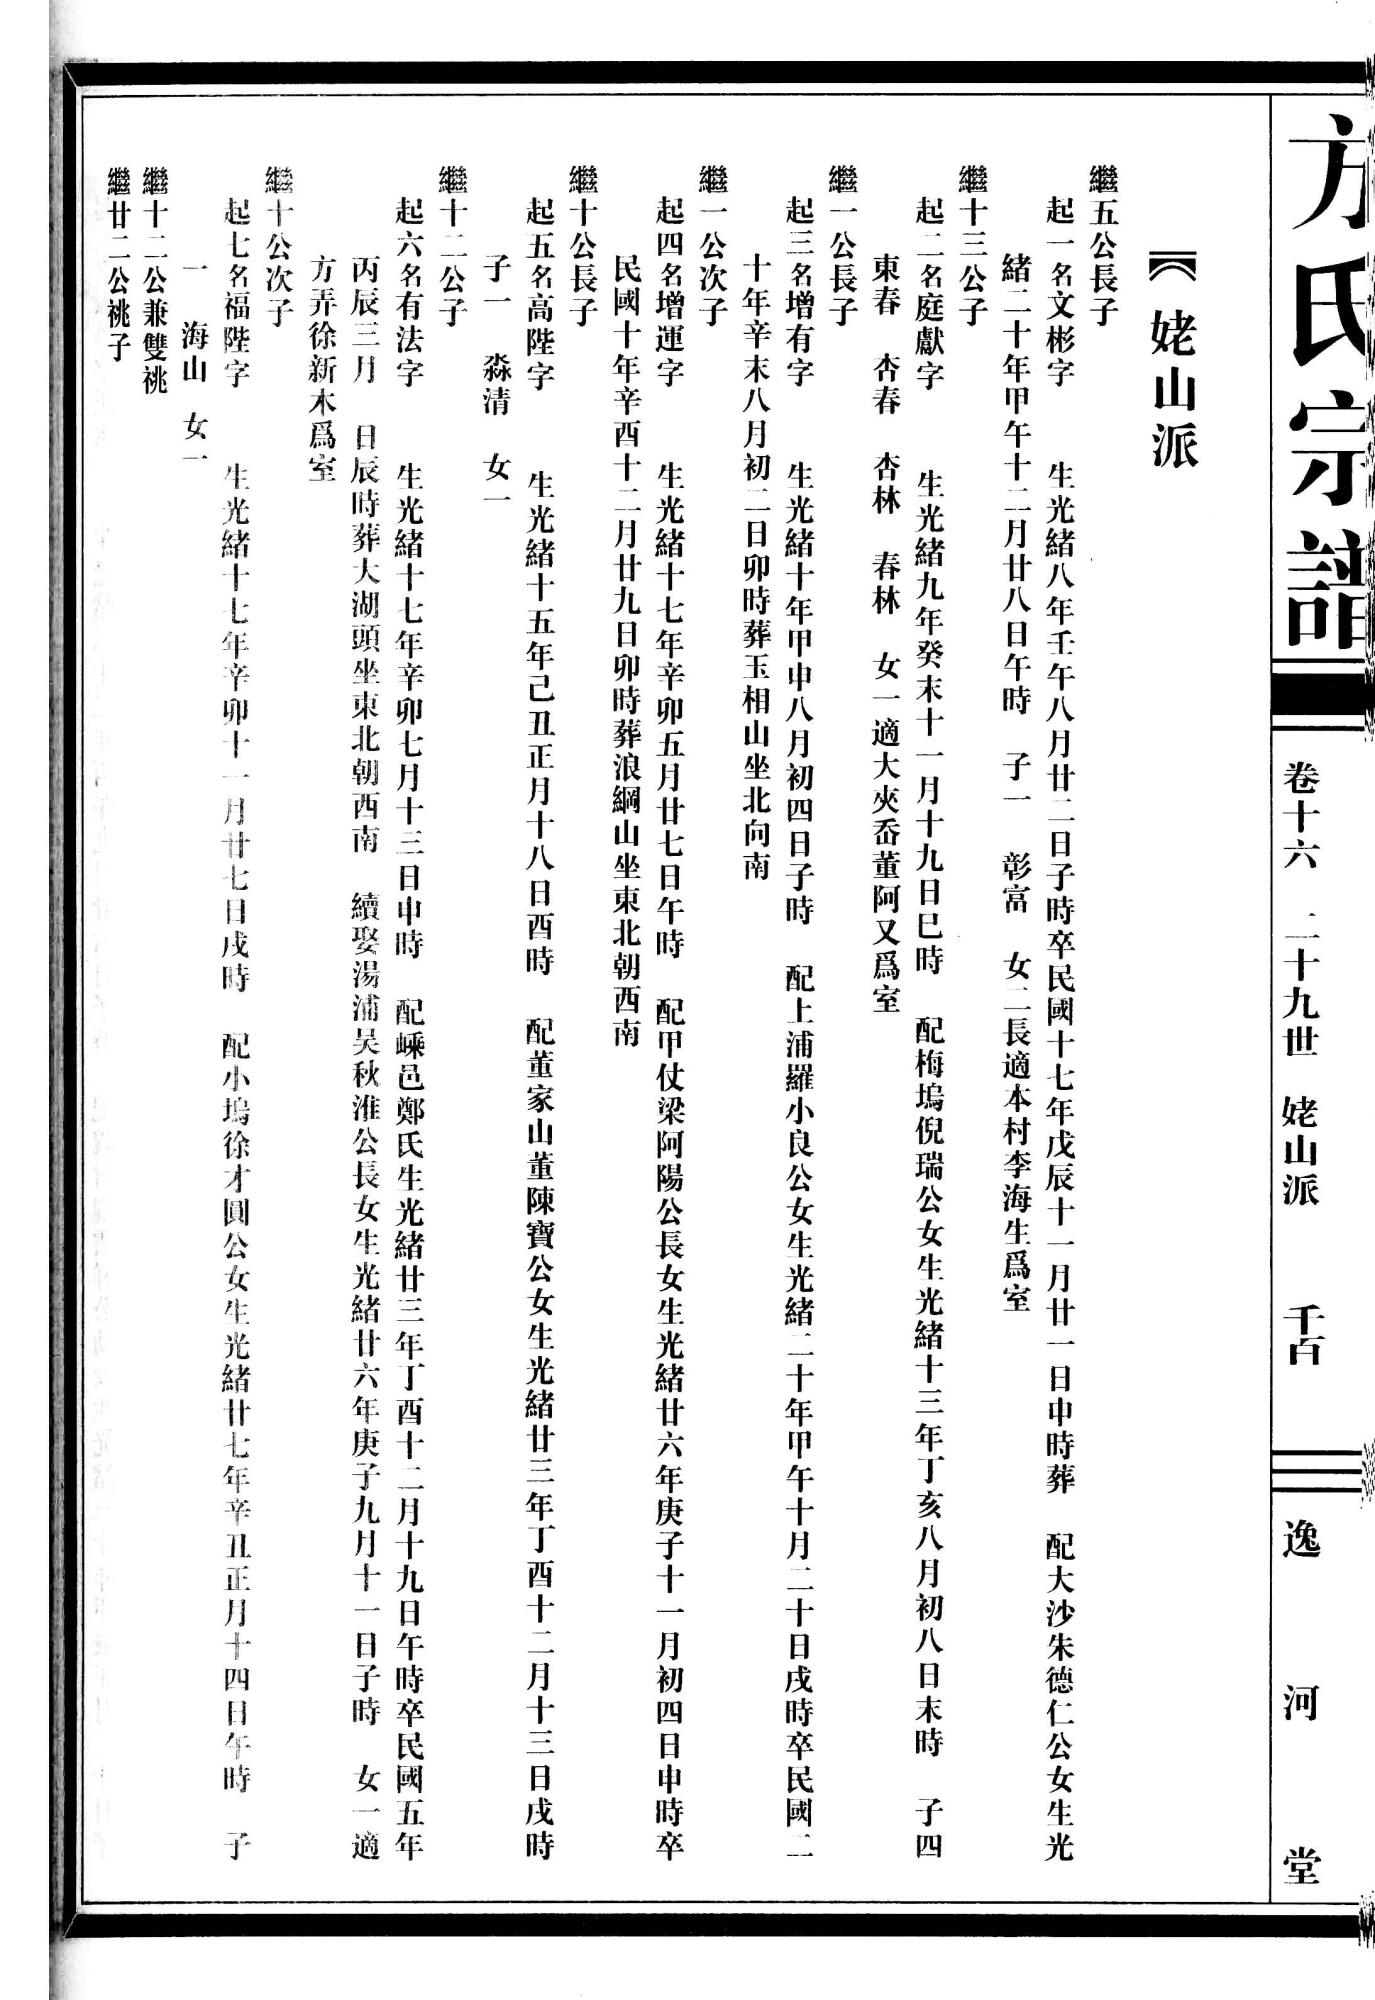 方氏宗譜
卷十六 二十九世 姥山派 千百 逸河堂
姥山派
繼五公長子
起一名文彬字 生光緒八年壬午八月廿二日子時卒民國十七年戊辰十一月廿一日申時葬 配大沙朱德仁公女生光
緒二十年甲午十二月廿八日午時 子一 彰富 女二長適本村李海生爲室
繼十三公子
起二名庭獻字 生光緒九年癸末十一月十九日巳時 配梅塢倪瑞公女生光緒十三年丁亥八月初八日末時 子四
東春 杏春 杏林 春林 女一適大夾岙董阿又爲室
繼一公長子
起三名增有字 生光緒十年甲申八月初四日子時 配上浦羅小良公女生光緒二十年甲午十月二十日戌時卒民國二
十年辛末八月初二日卯時葬玉相山坐北向南
繼一公次子
起四名增運字 生光緒十七年辛卯五月廿七日午時 配甲仗梁阿陽公長女生光緒廿六年庚子十一月初四日申時卒
民國十年辛酉十二月廿九日卯時葬浪綱山坐東北朝西南
繼十公長子
起五名高陛字 生光緒十五年己丑正月十八日酉時 配董家山董陳寶公女生光緒廿三年丁酉十二月十三日戌時
子一 淼清 女一
繼十二公子
起六名有法字 生光緒十七年辛卯七月十三日申時 配嵊邑鄭氏生光緒廿三年丁酉十二月十九日午時卒民國五年
丙辰三月 日辰時葬大湖頭坐東北朝西南 續娶湯浦吴秋淮公長女生光緒廿六年庚子九月十一日子時 女一適
方弄徐新木爲室
繼十公次子
起七名福陛字 生光緒十七年辛卯十一月廿七日戌時 配小塢徐才圓公女生光緒廿七年辛丑正月十四日午時 子
一 海山 女一
繼十二公兼雙祧
繼廿二公祧子